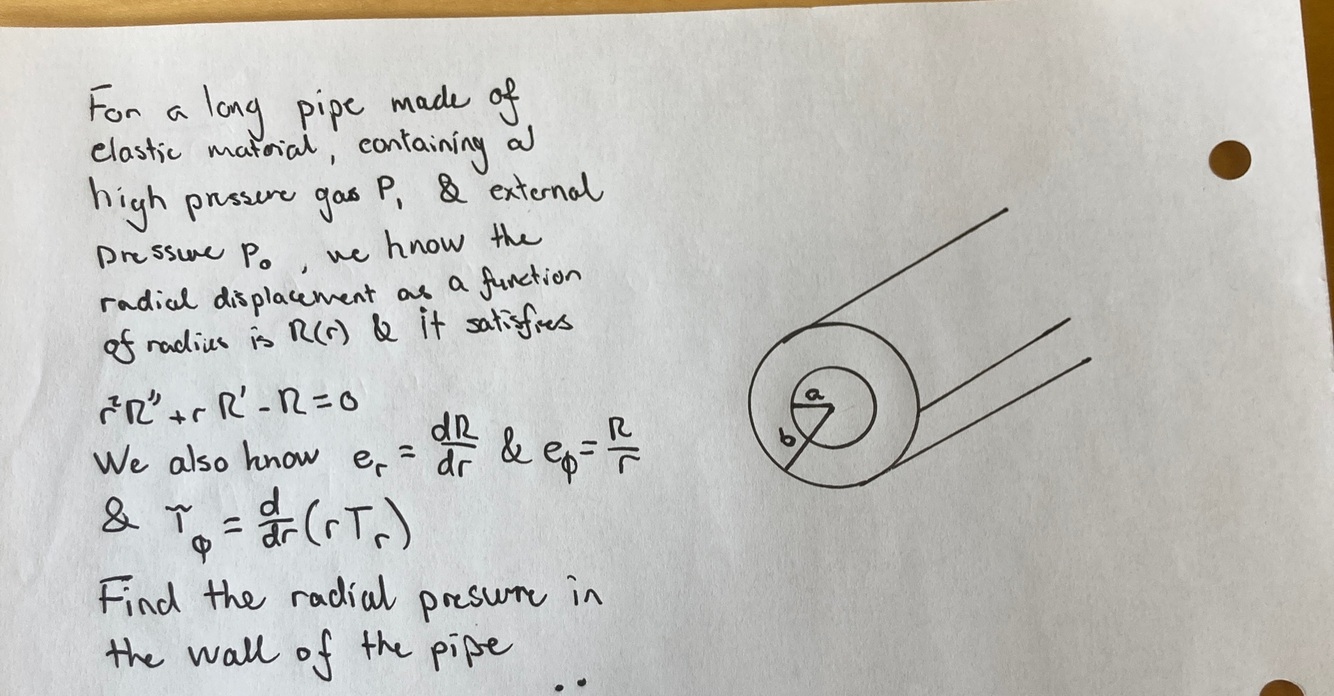 For a long pipe made of
elastic material, containing a
high pressure gas P₁ & external
pressure P₀, we know the
radial displacement as a function
of radius is R(r) & it satisfies
r²R'' + r R' - R = 0
We also know e_r = dR/dr & e_ϕ = R/r
& T_ϕ = d/dr (r T_r)
Find the radial presure in
the wall of the pipe
a
b